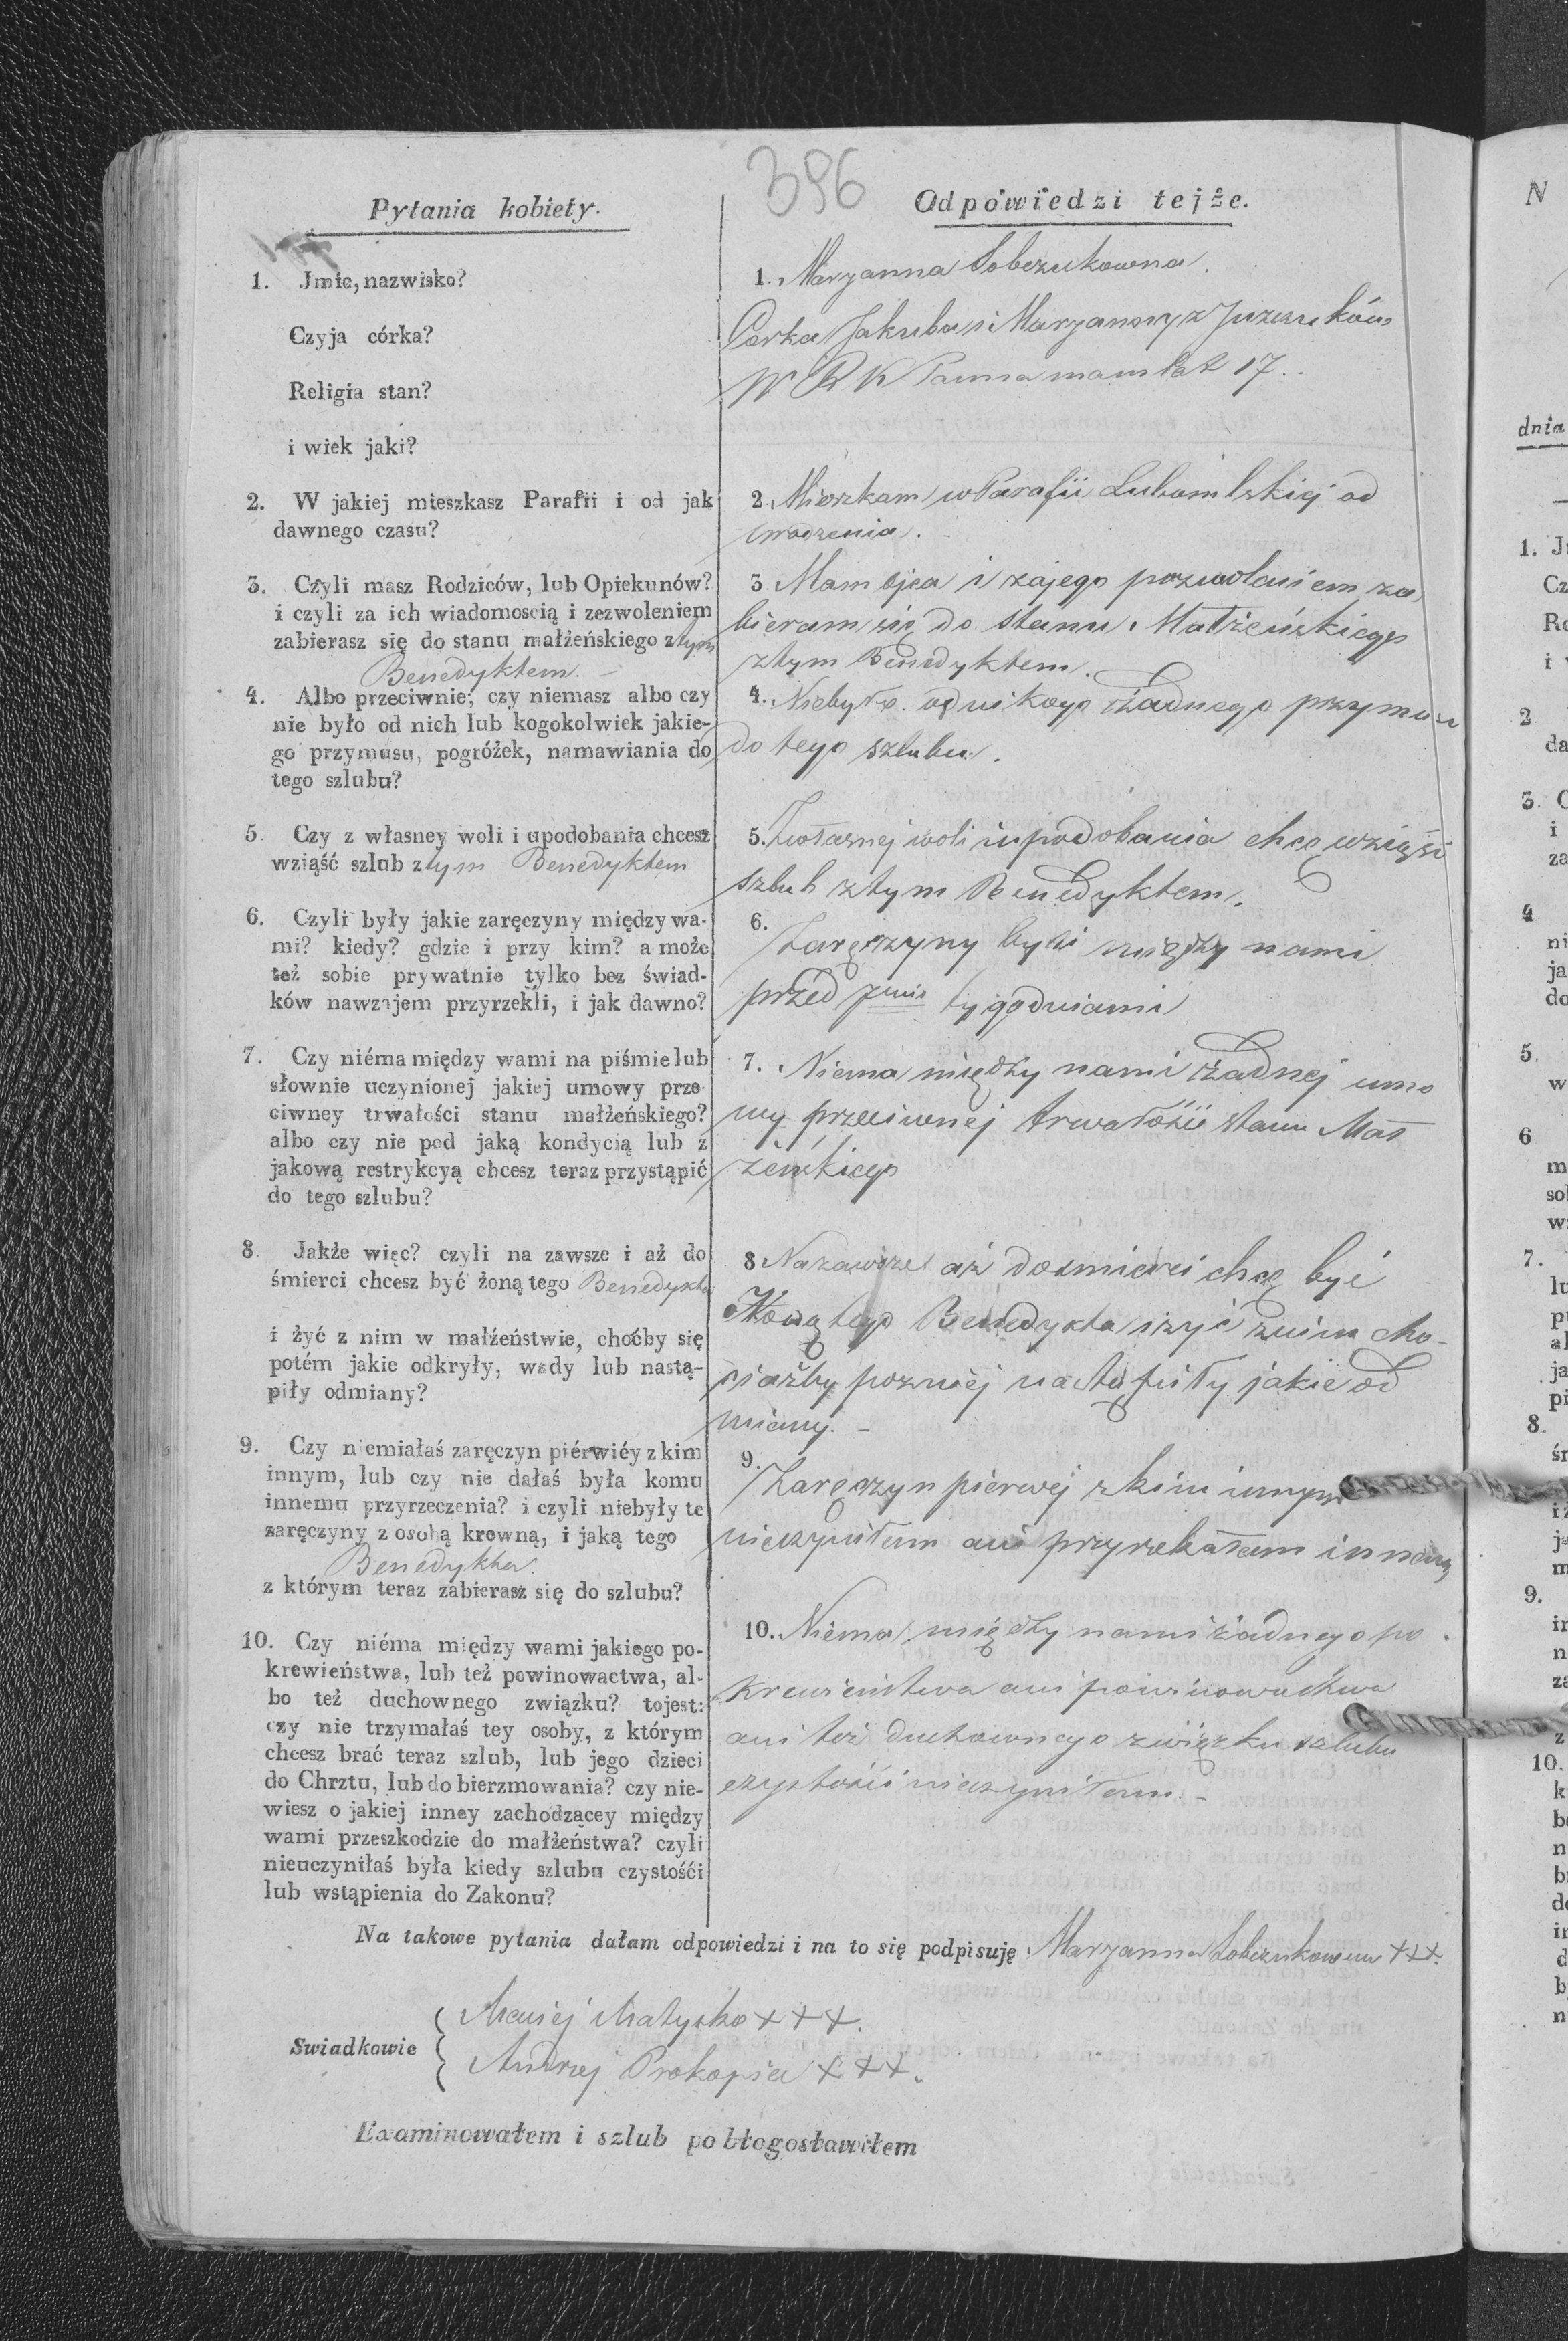 396
Pytania kobiety.
Odpowiedzi tejże.
1. Jmie, nazwisko?
Czyja córka?
Religia stan?
i wiek jaki?
1. Maryanna Sobczukowna.
Corka Jakuba i Maryanny z Juzczuków
W R K Panna mam lat 17..
2. W jakiej mieszkasz Parafii i od jak
dawnego czasu?
2. Mieszkam w Parafii Lubomlskiej od
urodzenia.
3. Czyli masz Rodziców, lub Opiekunów?
i czyli za ich wiadomoscią i zezwoleniem
zabierasz się do stanu małżeńskiego z tym
Benedyktem. –
3 Mam ojca i zajego pozwoleniem za
bieram się do stanu Małżeńskiego
ztym Benedyktem.
4. Albo przeciwnie, czy niemasz albo czy
nie było od nich lub kogokolwiek jakie-
go przymusu, pogróżek, namawiania do
tego szlubu?
4. Niebyło od nikogo żadnego przymusu
do tego szlubu.
5 Czy z własney woli i upodobania chcesz
wziąść szlub z tym Benedyktem
5. Zwłasnej woli iupodobania chcę wziąść
szlub ztym Benedyktem.
6. Czyli były jakie zaręczyny między wa-
mi? kiedy? gdzie i przy kim? a może
też sobie prywatnie tylko bez świad-
ków nawzajem przyrzekli, i jak dawno?
6.
Zaręczyny byli między nami
przed tygodniami
7. Czy niéma między wami na piśmie lub
słownie uczynionej jakiej umowy prze-
ciwney trwałości stanu małżeńskiego?
albo czy nie pod jaką kondycią lub z
jakową restrykcyą chcesz teraz przystąpić
do tego szlubu?
7. Niema między nami żadnej umo
wy przeciwnej trwałości stanu Mał
żeńskiego
8 Jakże więc? czyli na zawsze i aż do
śmierci chcesz być żoną tego Benedykta
i żyć z nim w małżeństwie, choćby się
potém jakie odkryły, wady lub nastą-
piły odmiany?
8 Nazawsze aż dosmierci chcę być
Żoną tego Benedykta iżyć znim cho-
ciażby pozniej nastąpiły jakie od
miany. –
9. Czy niemiałaś zaręczyn piérwiéy z kim
innym, lub czy nie dałaś była komu
innemu przyrzeczenia? i czyli niebyły te
zaręczyny z osobą krewną, i jaką tego
Benedykta.
z którym teraz zabierasz się do szlubu?
9.
Zaręczyn pierwej zkim innym
nieczyniłam ani przyrzekałam innemu
10. Czy niéma między wami jakiego po-
krewieństwa, lub też powinowactwa, al-
bo też duchownego związku? tojest:
czy nie trzymałaś tey osoby, z którym
chcesz brać teraz szlub, lub jego dzieci
do Chrztu, lub do bierzmowania? czy nie-
wiesz o jakiej inney zachodzącey między
wami przeszkodzie do małżeństwa? czyli
nieuczyniłaś była kiedy szlubu czystośći
lub wstąpienia do Zakonu?
10. Niema między nami żadnego po
krewieństwa ani powinowactwa
ani też duchownego związku szlubu
czystości nieczyniłam. –
Na takowe pytania dałam odpowiedzi i na to się podpisuję Maryanna Sobczukowna +++.
Swiadkowie
Maciej Matysko +++.
Andrzej Prokopia +++.
Examinowałem i szlub pobłogosławiłem
N
dnia